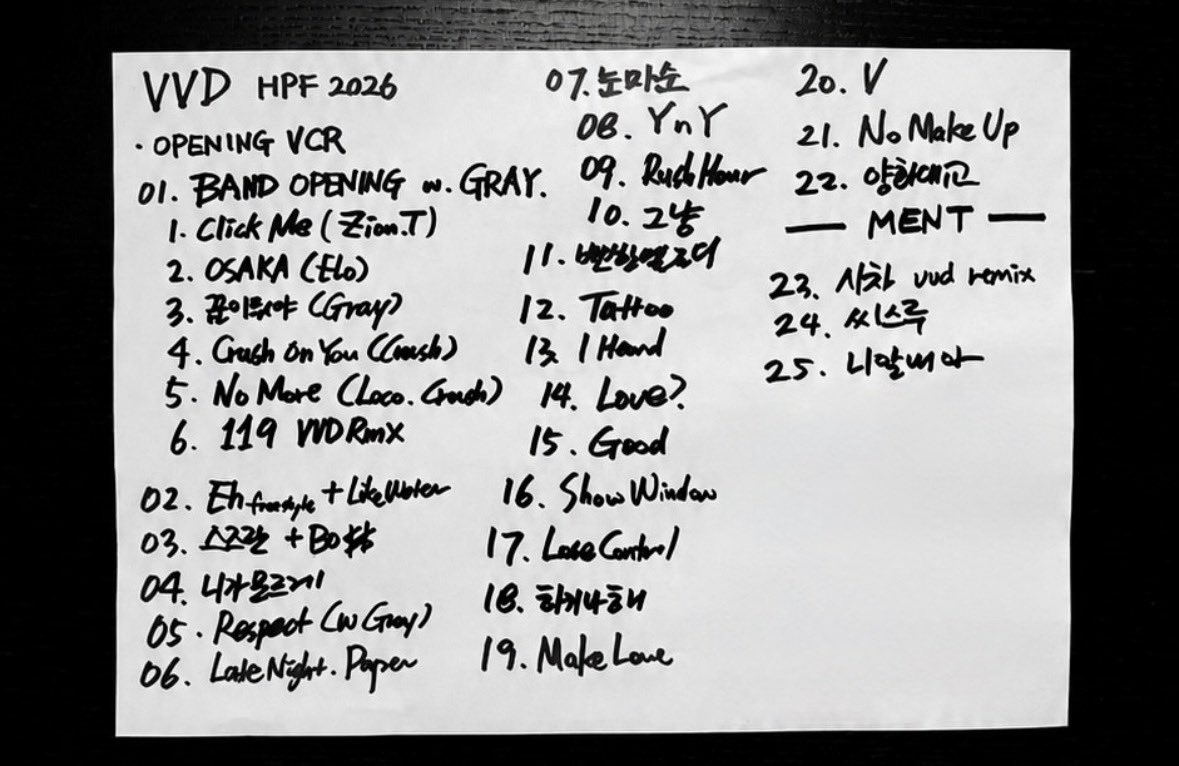 VVD HPF 2026
· OPENING VCR
01. BAND OPENING w. GRAY.
1. Click Me (Zion.T)
2. OSAKA (Elo)
3. 꿈이뭐야 (Gray)
4. Crush On You (Crush)
5. No More (Loco. Crush)
6. 119 VVD Rmx
02. Eh freestyle + Like Water
03. 스즈란 + Bo$$
04. 니가모르게
05. Respect (w Gray)
06. Late Night. Paper
07. 눈마순
08. Y n Y
09. Rush Hour
10. 그냥
11. 뻔한멜로디
12. Tattoo
13. I Heard
14. Love?
15. Good
16. Show Window
17. Lose Control
18. 하거나해
19. Make Love
20. V
21. No Make Up
22. 양화대교
— MENT —
23. 시차 vvd remix
24. 씨스루
25. 니말내아